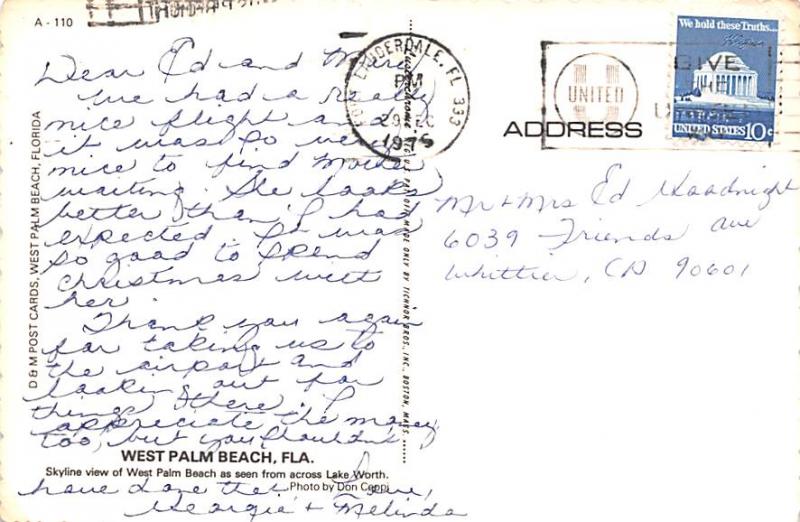 A - 110
Dear Ed and
we had a really
nice flight and
it was so very
nice to find Mother
waiting. She looks
better than I had
expected. It was
so good to spend
Christmas with
her.
Thank you again
for taking us to
the airport and
looking out for
things there. I
appreciate the money
too, but you shouldn't
have done that. Love,
Georgie + Melinda
WEST PALM BEACH, FLA.
Skyline view of West Palm Beach as seen from across Lake Worth.
Photo by Don Ceppi
D & M POST CARDS, WEST PALM BEACH, FLORIDA
MADE ONLY BY TICHNOR BROS., INC., BOSTON, MASS.
LAUDERDALE, FL 333
PM
29
1975
UNITED
GIVE
ADDRESS
We hold these Truths...
UNITED STATES 10c
Mr + Mrs Ed Goodnight
6039 Friends Ave
Whittier, CA 90601